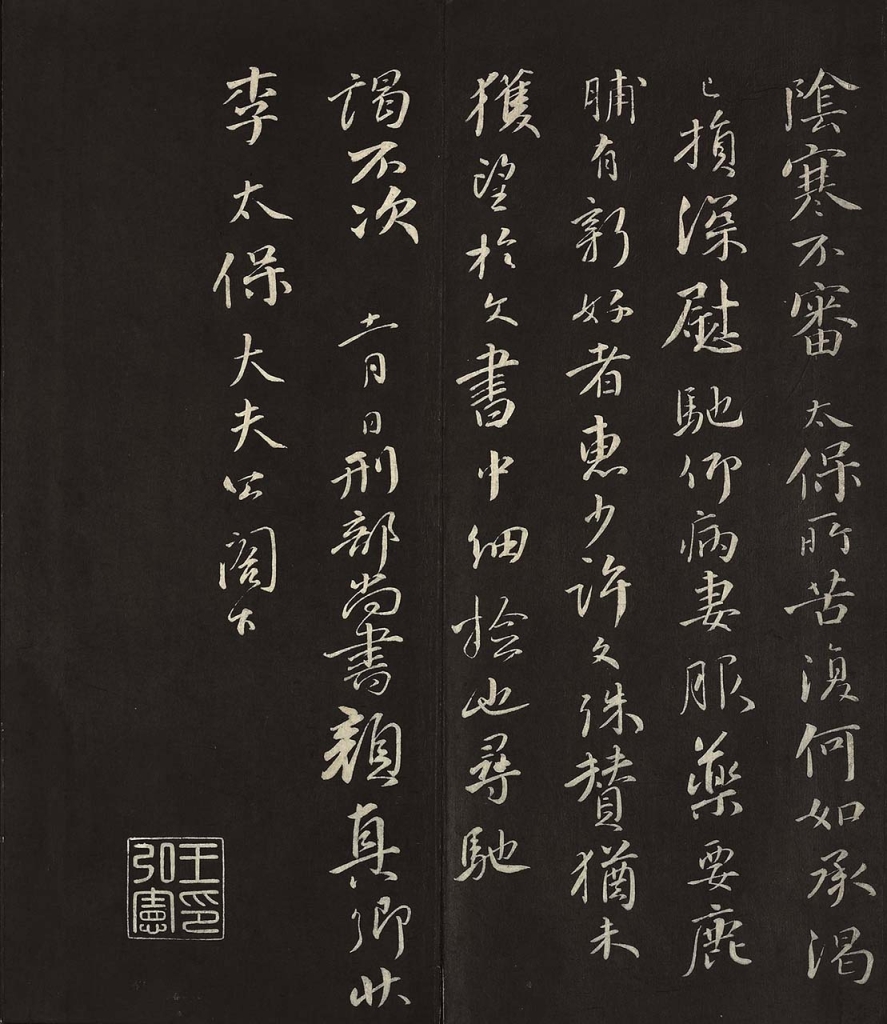 陰寒不審 太保所苦復何如承渴
已損深慰馳仰病妻服藥要鹿
脯有新好者惠少許文殊贊猶未
獲望於文書中細撿也尋馳
謁不次 十一月日刑部尚書顏真卿狀
李太保大夫公閣下
王印引憲